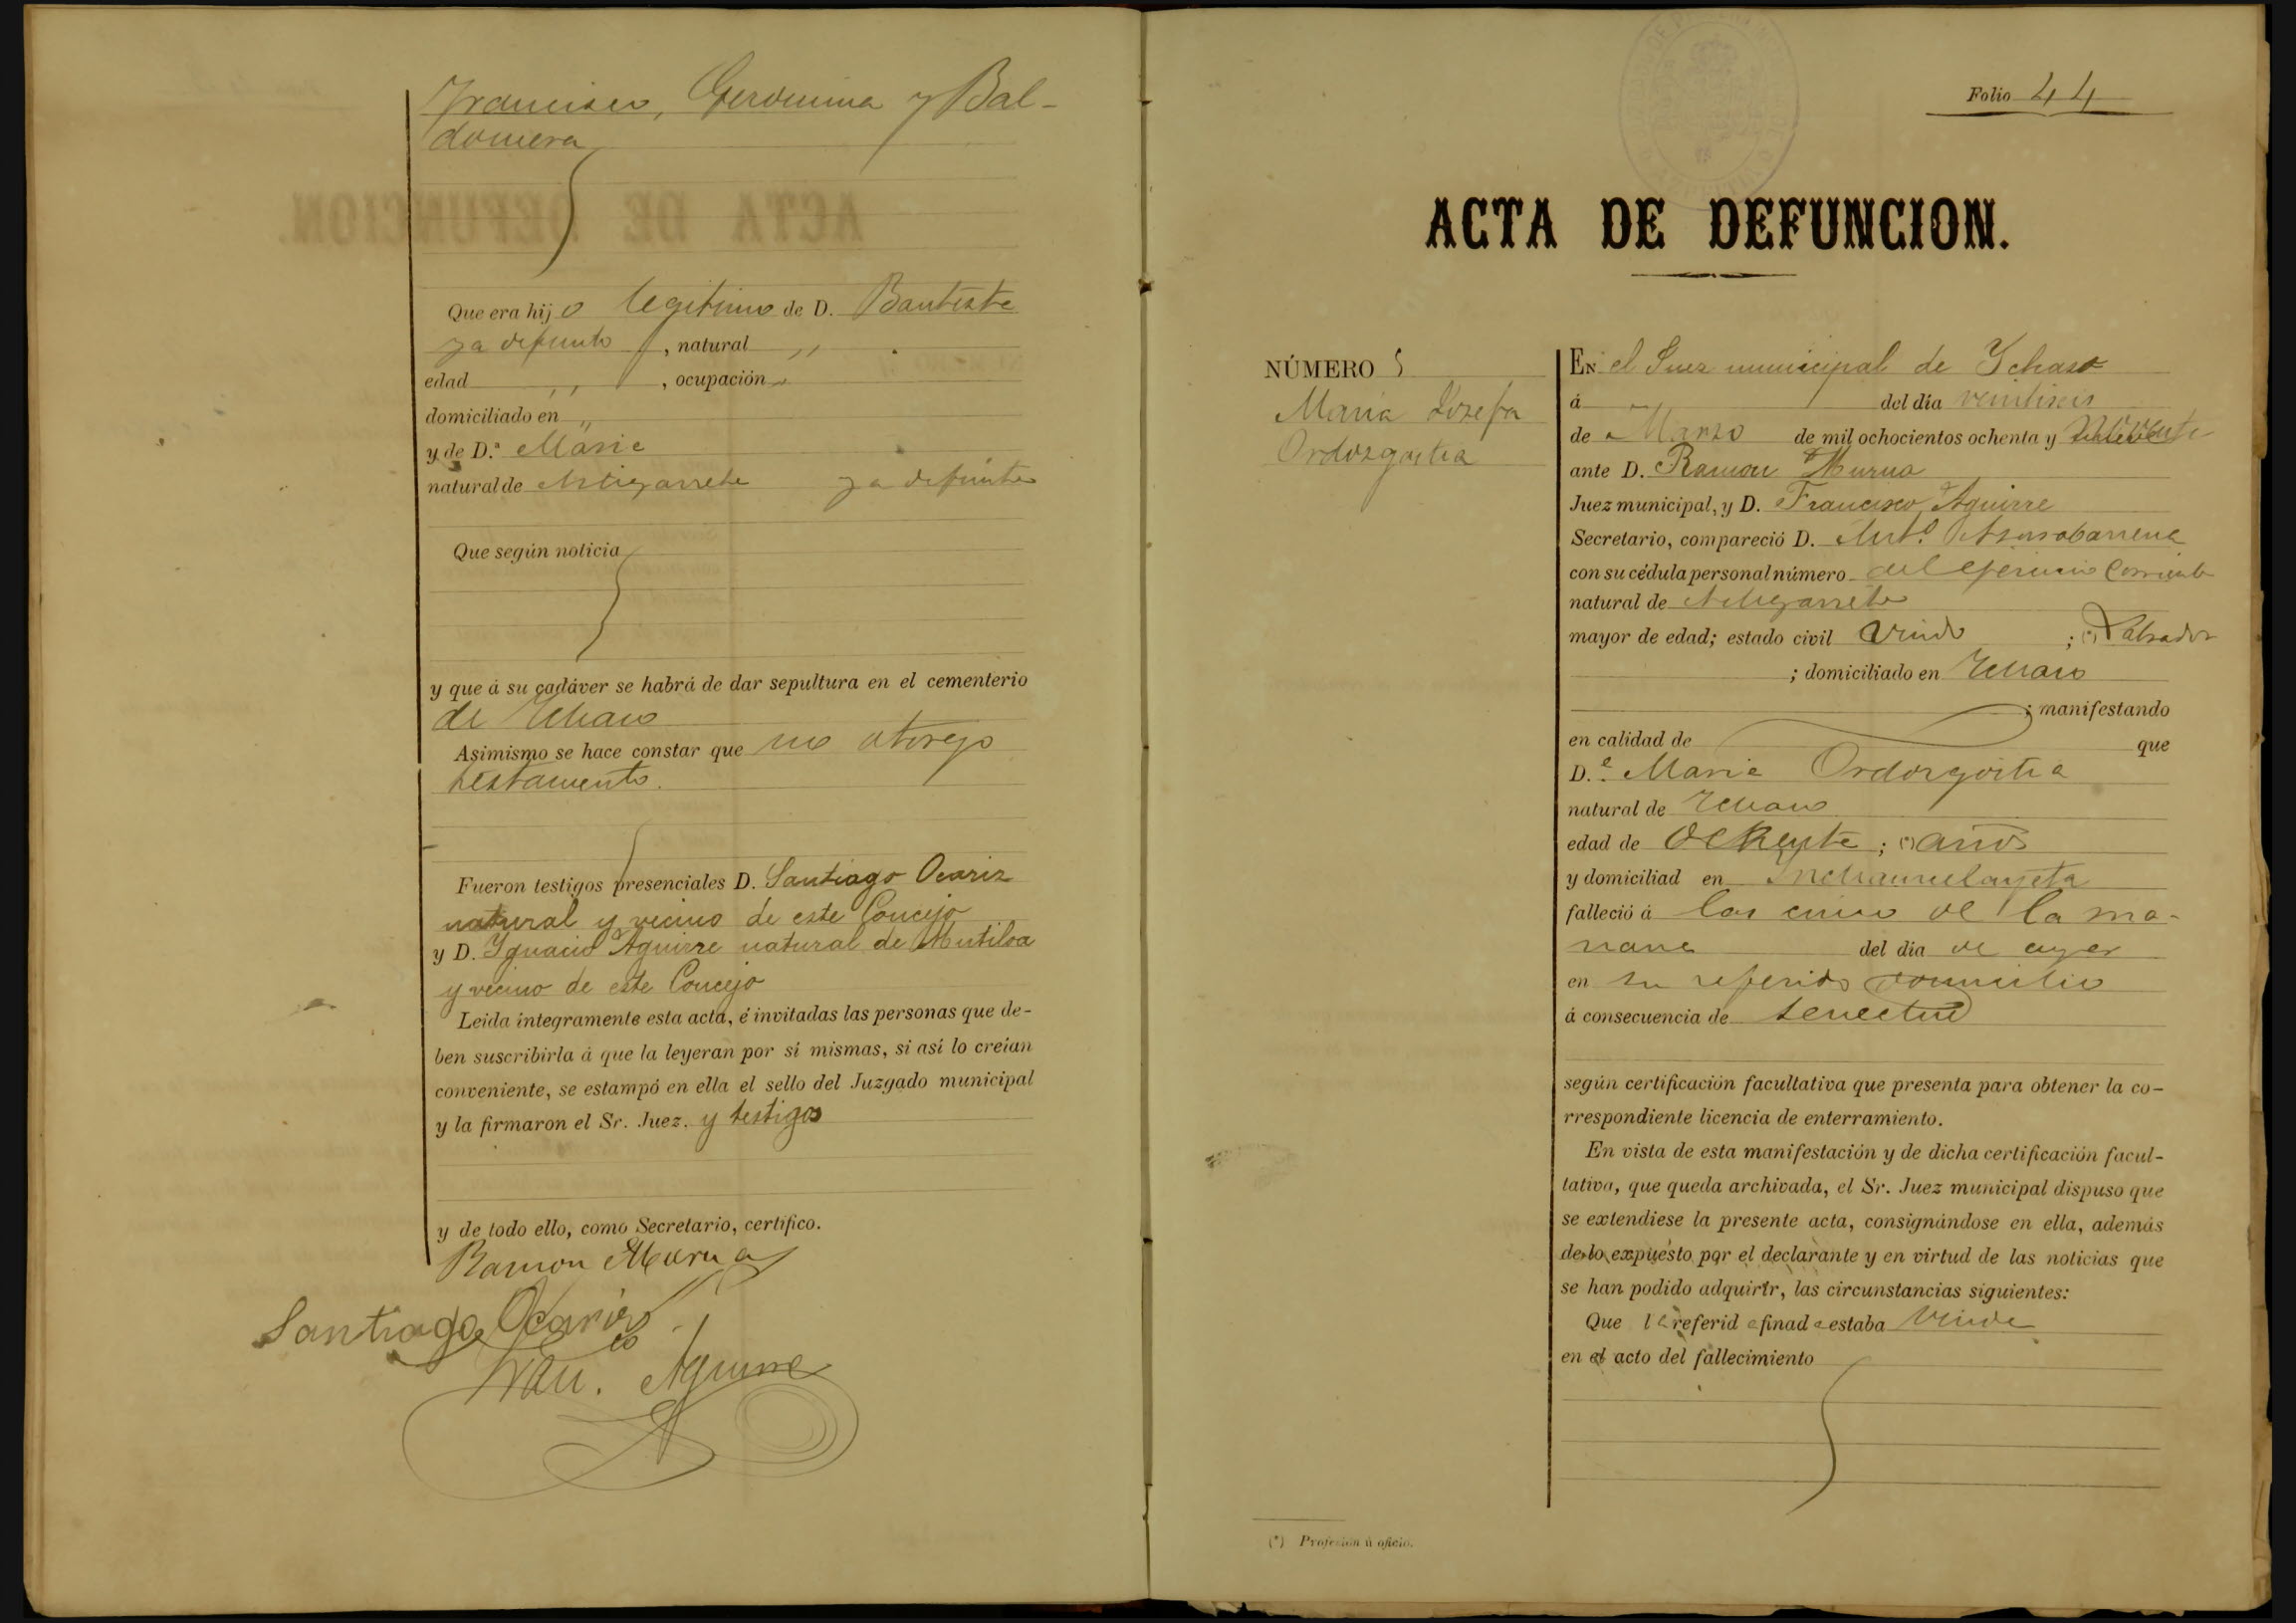 Francisco, Geronima y Bal-
domera
Que era hijo legitimo de D. Bautista
ya defunto, natural ,,
edad ,, , ocupación ,,
domiciliado en ,,
y de D.ª Maria
natural de Astigarreta ya defunta
Que según noticia
y que á su cadáver se habrá de dar sepultura en el cementerio
de Ichaso
Asimismo se hace constar que no otorgo
testamento.
Fueron testigos presenciales D. Santiago Ocariz
natural y vecino de este Concejo
y D. Ygnacio Aguirre natural de Mutiloa
y vecino de este Concejo
Leida íntegramente esta acta, é invitadas las personas que de-
ben suscribirla á que la leyeran por sí mismas, si así lo creian
conveniente, se estampó en ella el sello del Juzgado municipal
y la firmaron el Sr. Juez. y testigos
y de todo ello, como Secretario, certifico.
Ramon Murua
Santiago Ocariz
Fran.co Aguirre
Folio 44
ACTA DE DEFUNCION.
NÚMERO 5
Maria Josefa
Ordozgoitia
EN el Juez municipal de Ychaso
á del día veintiseis
de Marzo de mil ochocientos ochenta y
ante D. Ramon Murua
Juez municipal, y D. Francisco Aguirre
Secretario, compareció D. Ant.º
con su cédula personal número del ejercicio corriente
natural de Astigarreta
mayor de edad; estado civil viudo ; (*) Labrador
; domiciliado en Ichaso
; manifestando
en calidad de que
D.ª Maria Ordozgoitia
natural de Ichaso
edad de ochenta ; (*) años
y domiciliad en
falleció á las cinco de la ma-
ñana del día de ayer
en su referido domicilio
á consecuencia de senectud
según certificación facultativa que presenta para obtener la co-
rrespondiente licencia de enterramiento.
En vista de esta manifestación y de dicha certificación facul-
tativa, que queda archivada, el Sr. Juez municipal dispuso que
se extendiese la presente acta, consignándose en ella, además
de lo expuesto por el declarante y en virtud de las noticias que
se han podido adquirir, las circunstancias siguientes:
Que la referida finada estaba viuda
en el acto del fallecimiento
(*) Profesión ú oficio.